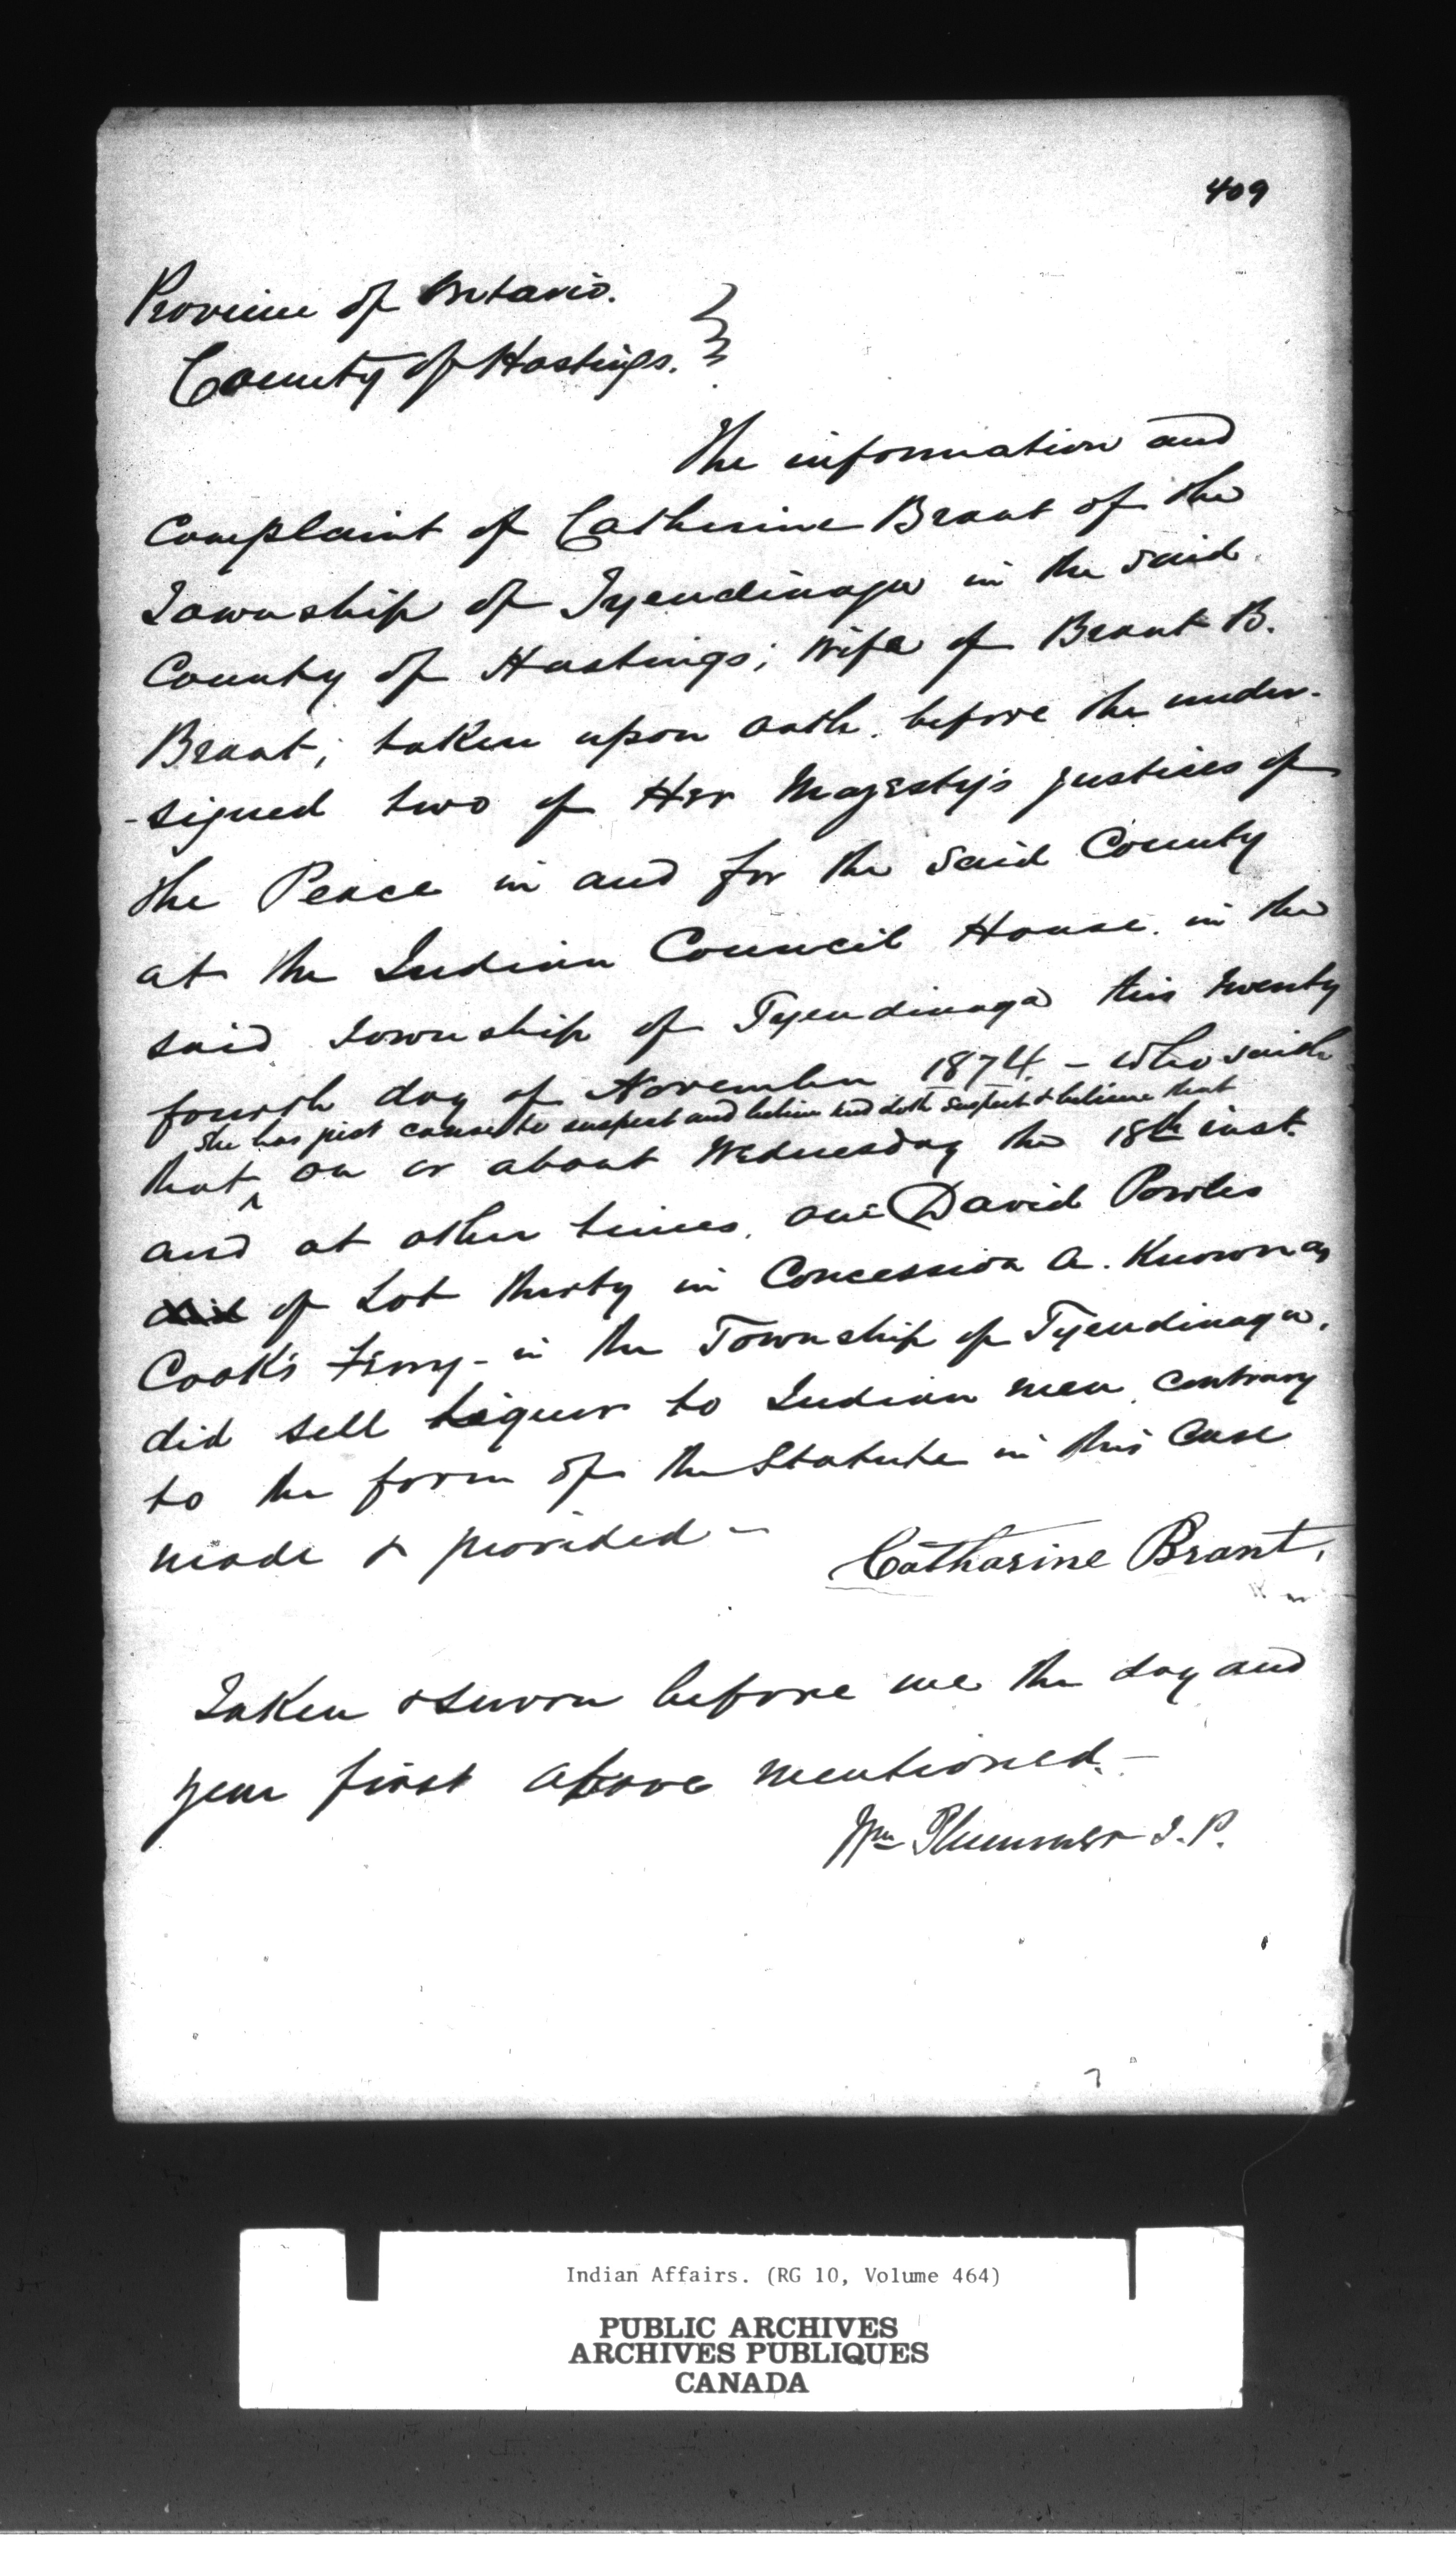 409
Province of Ontario.
County of Hastings. }
The information and
Complaint of Catherine Brant of the
Township of Tyendinaga in the said
County of Hastings; wife of Brant B.
Brant; taken upon oath. before the under-
-signed two of Her Majesty's justices of
the Peace in and for the said County
at the Indian Council House. in the
said Township of Tyendinaga this twenty
fourth day of November 1874. - who saith
she has just cause to suspect and believe and doth suspect & believe that
that ^ on or about Wednesday the 18th inst.
and at other times. one David Powles
did of Lot thirty in Concession A. Known as
Cook's Ferry - in the Township of Tyendinaga.
did sell liquor to Indian men contrary
to the form of the Statute in this Case
made & provided -
Catharine Brant.
Taken & sworn before me the day and
year first above mentioned. -
Wm Plummer J.P.
7
Indian Affairs. (RG 10, Volume 464)
PUBLIC ARCHIVES
ARCHIVES PUBLIQUES
CANADA